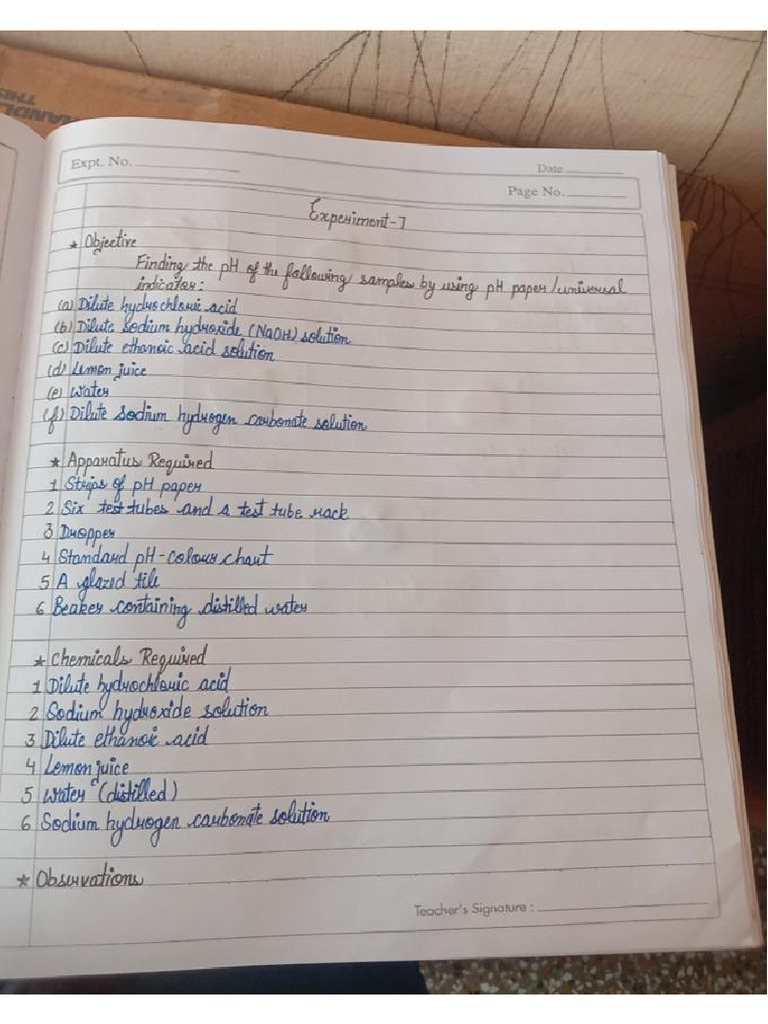 HANDL
THIS
Expt. No.
Date
Page No.
Experiment-7
* Objective
Finding the pH of the following samples by using pH paper/universal
indicator:
(a) Dilute hydrochloric acid
(b) Dilute sodium hydroxide (NaOH) solution
(c) Dilute ethanoic acid solution
(d) Lemon juice
(e) Water
(f) Dilute sodium hydrogen carbonate solution
* Apparatus Required
1 Strips of pH paper
2 Six test tubes and a test tube rack
3 Dropper
4 Standard pH-colour chart
5 A glazed tile
6 Beaker containing distilled water
* Chemicals Required
1 Dilute hydrochloric acid
2 Sodium hydroxide solution
3 Dilute ethanoic acid
4 Lemon juice
5 Water (distilled)
6 Sodium hydrogen carbonate solution
* Observations
Teacher's Signature :